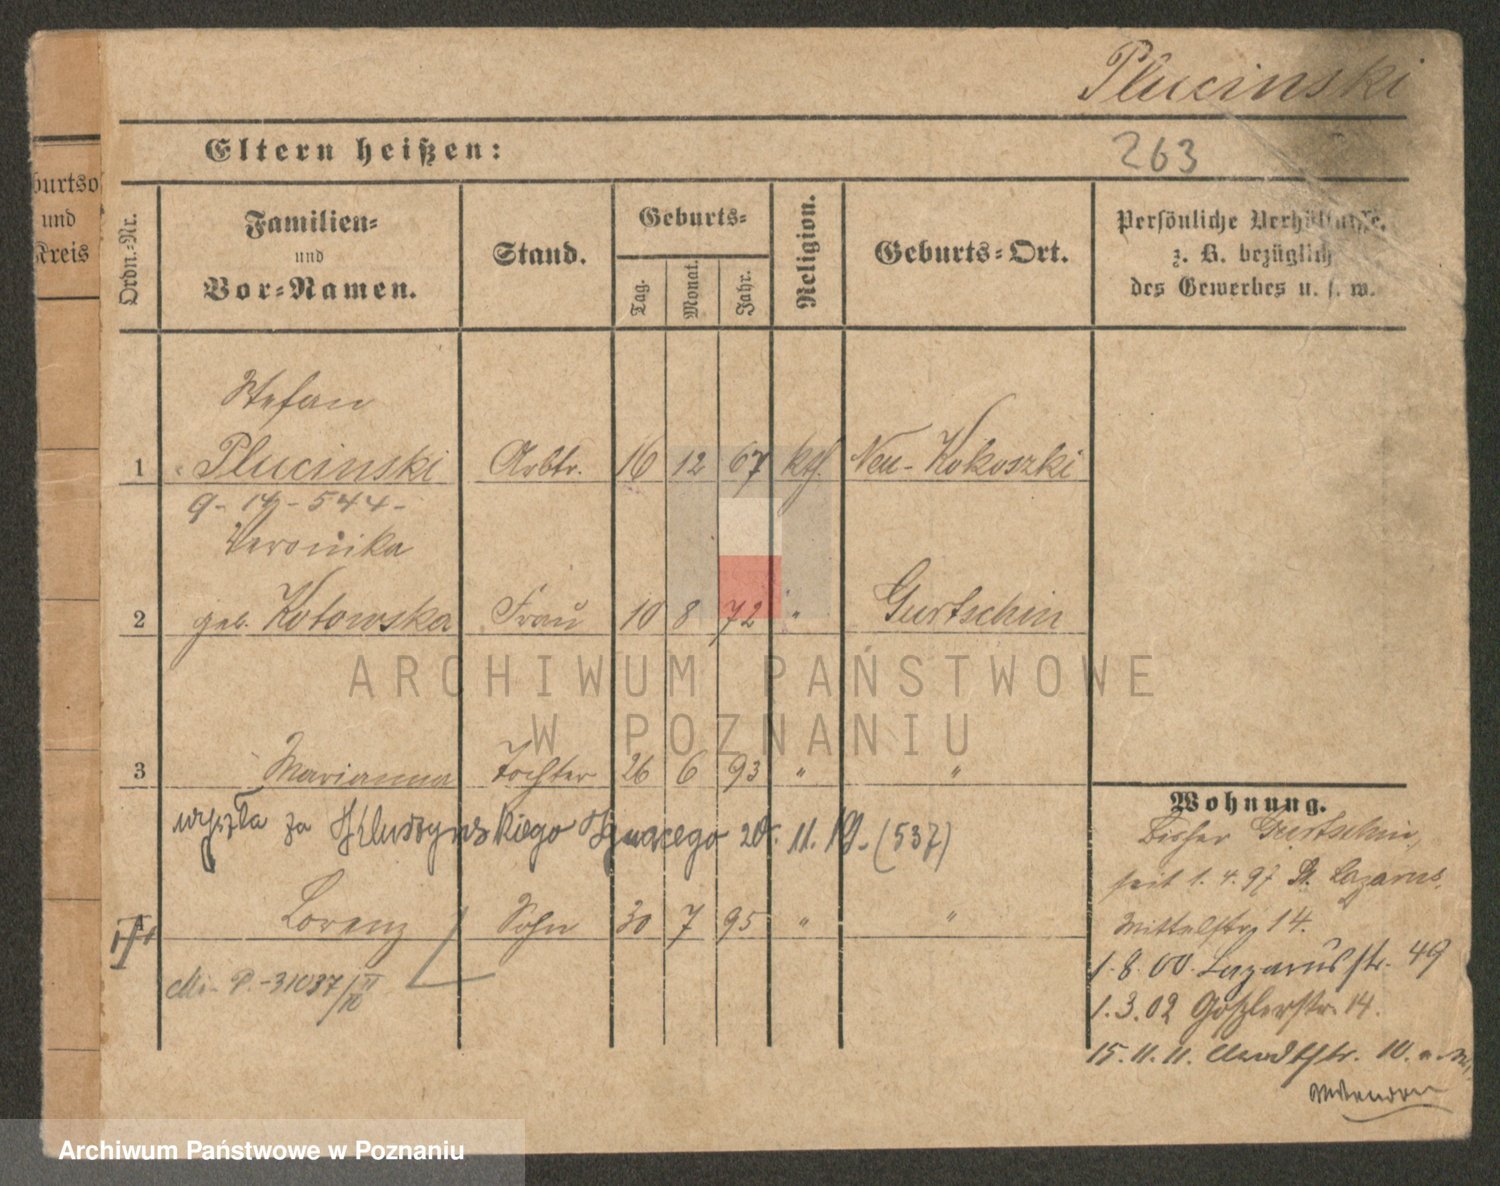 Plucinski
Eltern heißen:
263
burtso
und
Kreis
Ordn.-Nr.
Familien-
und
Vor-Namen.
Stand.
Geburts-
Tag.
Monat.
Jahr.
Religion.
Geburts-Ort.
Persönliche Verhältnisse,
z. B. bezüglich
des Gewerbes u. s. w.
Stefan
1 Plucinski Arbtr. 16 12 67 kth. Neu-Kokoszki
9-14-544-
Veronika
2 geb. Kotowska Frau 10 8 72 " Gurtschin
ARCHIWUM PAŃSTWOWE
W POZNANIU
3 Marianna Tochter 26 6 93 " "
Wohnung.
wyszła za Ignacego 20. 11. 19. (537)
Bisher Gurtschin,
seit 1. 4. 97 St. Lazarus,
Lorenz Sohn 30 7 95 " "
Mittelstr. 14.
1. 8. 00. Lazarusstr. 49
1. 3. 02 Goßlerstr. 14.
15. 11. 11. 10.
Archiwum Państwowe w Poznaniu